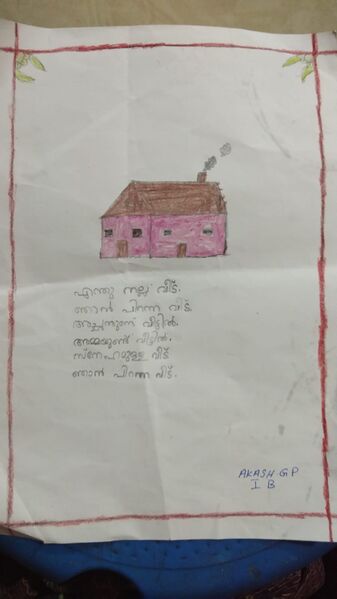 എന്തു നല്ല വീട്.
ഞാൻ പിറന്ന വീട്.
അച്ഛനുണ്ട് വീട്ടിൽ.
അമ്മയുണ്ട് വീട്ടിൽ.
സ്നേഹമുള്ള വീട്
ഞാൻ പിറന്ന വീട്.
AKASH GP
I B